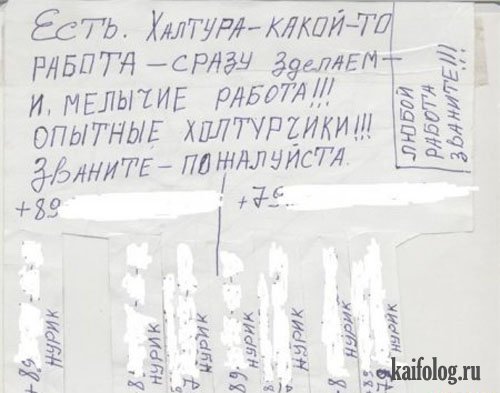 ЕСТЬ. ХАЛТУРА-КАКОЙ-ТО
РАБОТА - СРАЗУ ЗДЕЛАЕМ -
И, МЕЛЫЧИЕ РАБОТА!!!
ОПЫТНЫЕ ХОЛТУРЧИКИ!!!
ЗВАНИТЕ - ПОЖАЛУЙСТА.
ЛЮБОЙ
РАБОТА
ЗВАНИТЕ!!!
+89
+79
+89
НУРИК
8
НУРИК
7
НУРИК
89
НУРИК
+7
НУРИК
-8
НУРИК
+89
79
НУРИК
kaifolog.ru